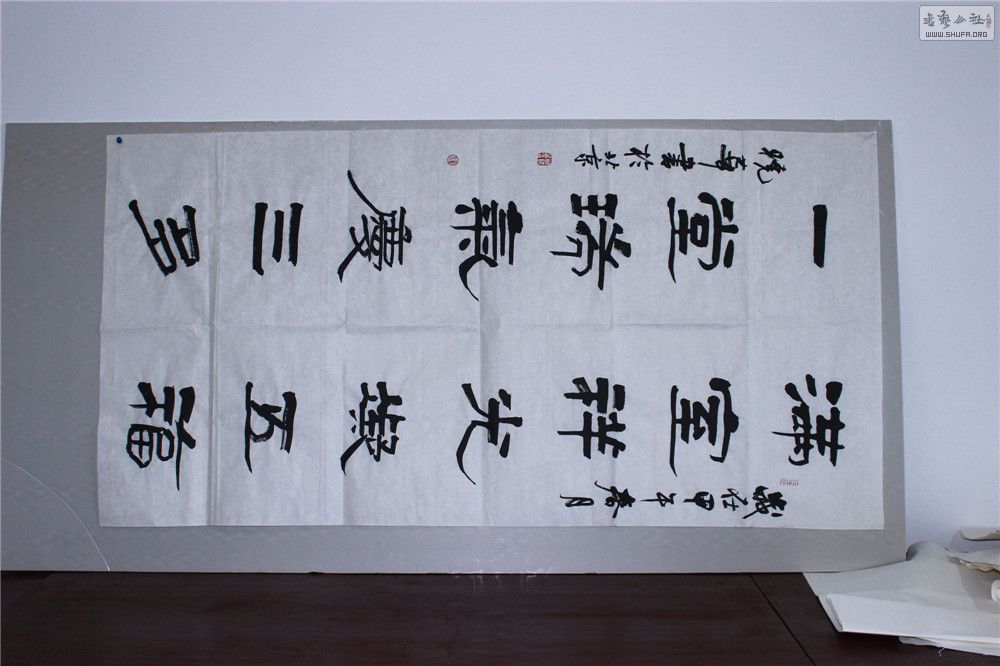 歲在甲午春月
滿室祥光五福
一堂瑞氣慶三多
曉書於北京
書藝公社
WWW.SHUFA.ORG